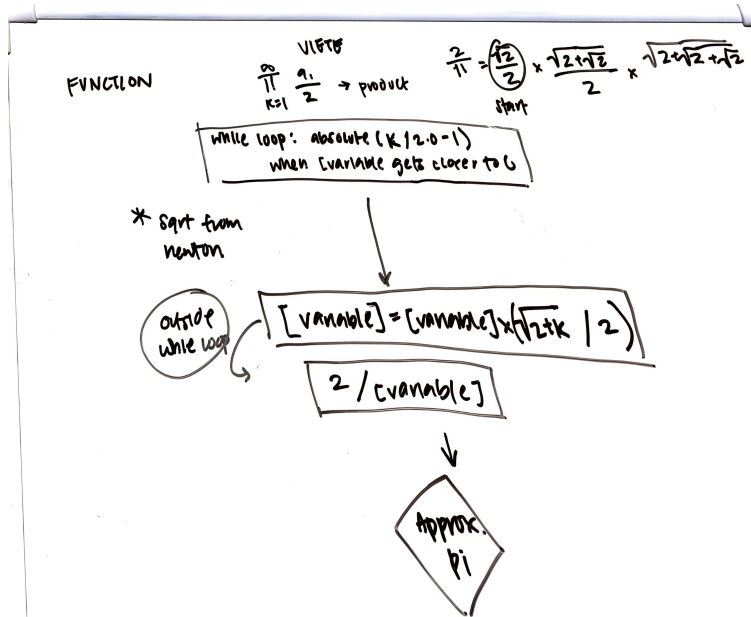 VIETE
FUNCTION
∞
π a₁/2 → product
K=1
2/π = √2/2 × √2+√2/2 × √2+√2+√2
start
while loop: absolute (K/2.0-1)
when [variable gets closer to 0
* sqrt from
newton
outside
while loop
[variable] = [variable] × (√2+K / 2)
2 / [variable]
Approx.
pi